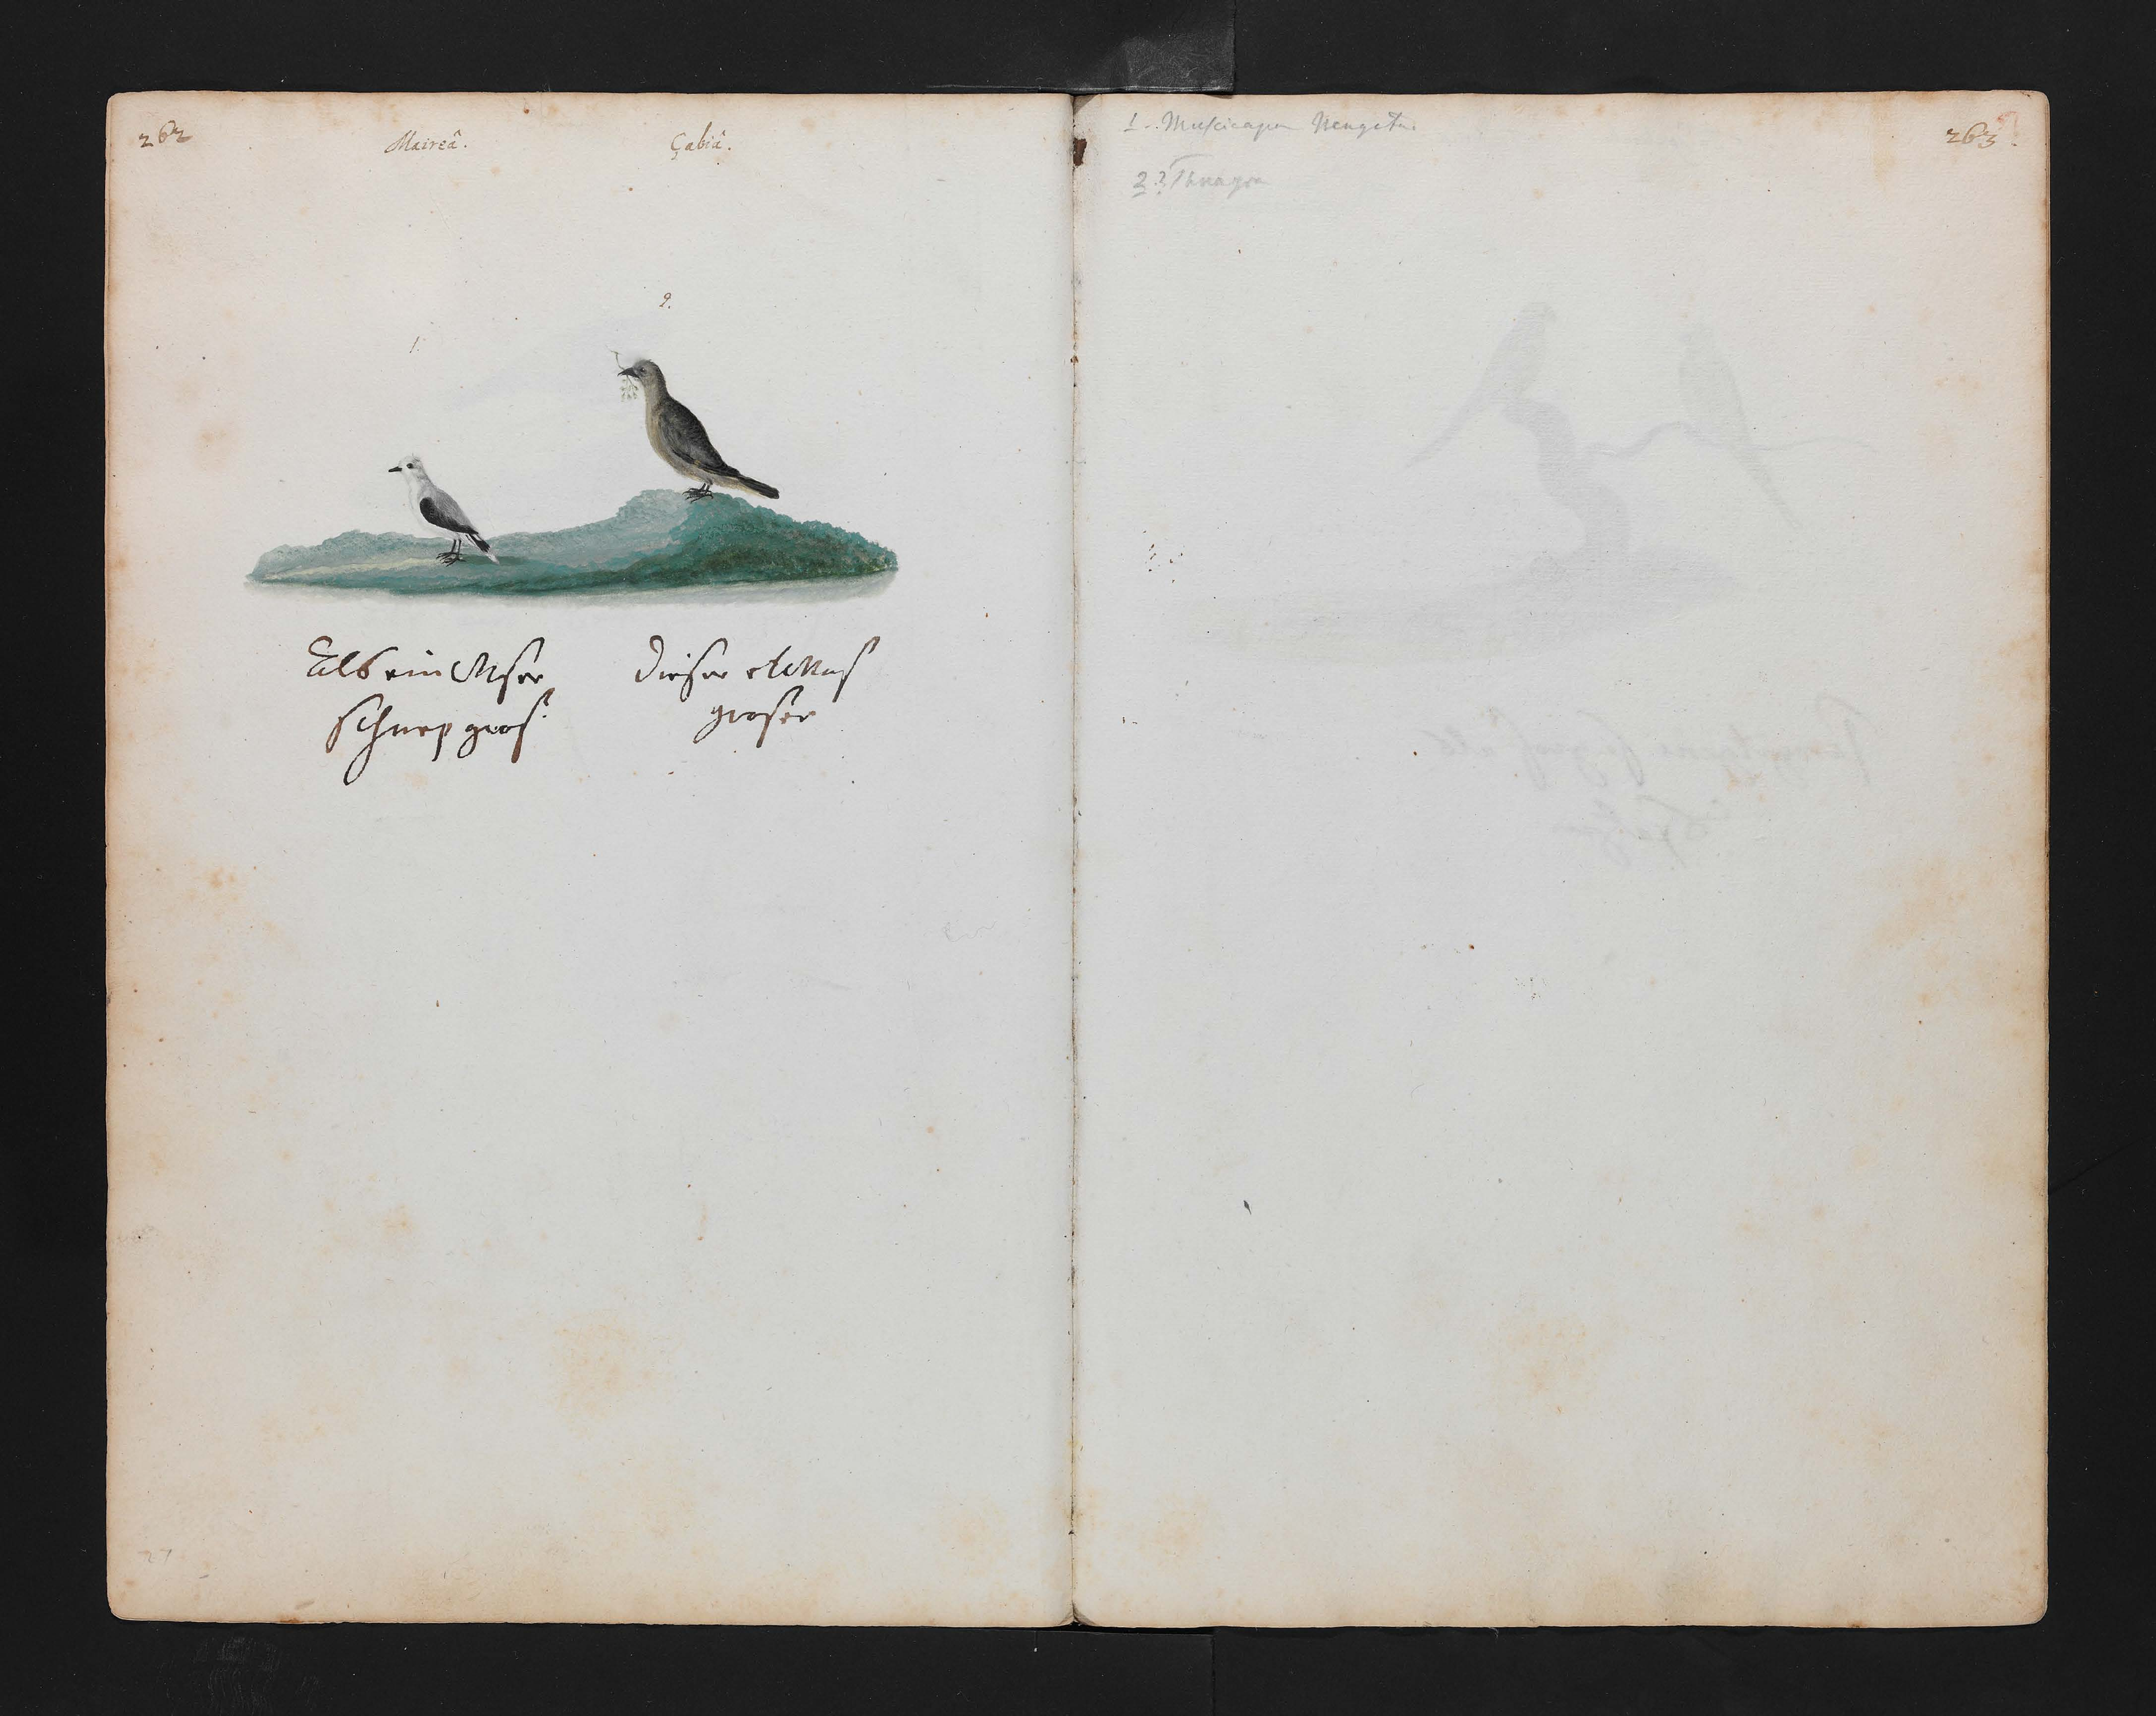 262
Maireâ.
Çabiâ.
1.
2.
Als ein
schnep gros.
dieser etwas
groser
1. Muscicapa Nengeta.
2? Tanagra
263
27